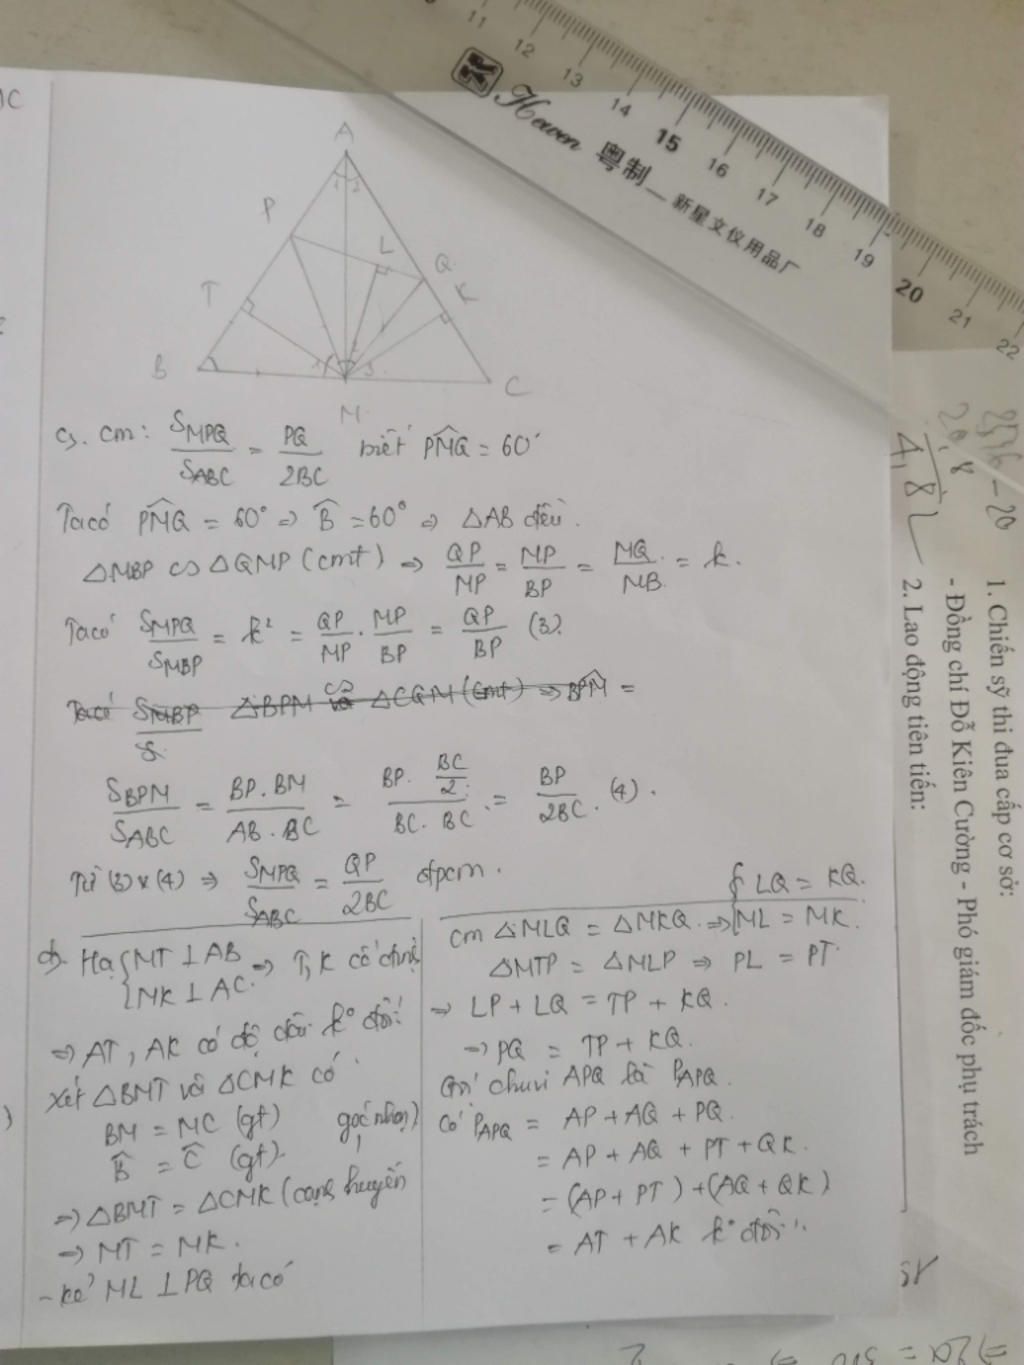 11 12 13 14 15 16 17 18 19 20 21 22
Hewen 粤制 新星文仪用品厂
1C
A
1 2
P
L
Q
K
T
B
1 2 3
C
M
c). cm: S_MPQ / S_ABC = PQ / 2BC biết PMQ = 60°
Ta có PMQ = 60° => B = 60° => △AB đều.
△MBP ∽ △QMP (cmt) => QP/MP = MP/BP = MQ/MB = k.
Ta có S_MPQ / S_MBP = k² = QP/MP . MP/BP = QP/BP (3).
Ta có S_MBP △BPM ∽ △CQM (cmt) => BPM =
S_BPM / S_ABC = BP.BM / AB.BC = BP. BC/2 / BC.BC = BP / 2BC. (4).
Từ (3) x (4) => S_MPQ / S_ABC = QP / 2BC đpcm.
d). Hạ { MT ⊥ AB
MK ⊥ AC. => T, K cố định
=> AT, AK có độ dài k° đổi
Xét △BMT và △CMK có
BM = MC (gt)
B = C (gt).
=> △BMT = △CMK (cạnh huyền góc nhọn)
=> MT = MK.
- kẻ ML ⊥ PQ ta có
cm △MLQ = △MKQ. => { LQ = KQ.
ML = MK.
△MTP = △MLP => PL = PT
=> LP + LQ = TP + KQ.
=> PQ = TP + KQ.
Gọi chu vi APQ là P_APQ.
Có P_APQ = AP + AQ + PQ.
= AP + AQ + PT + QK.
= (AP + PT) + (AQ + QK)
= AT + AK k° đổi
1. Chiến sỹ thi đua cấp cơ sở:
- Đồng chí Đỗ Kiên Cường - Phó giám đốc phụ trách
2. Lao động tiên tiến: